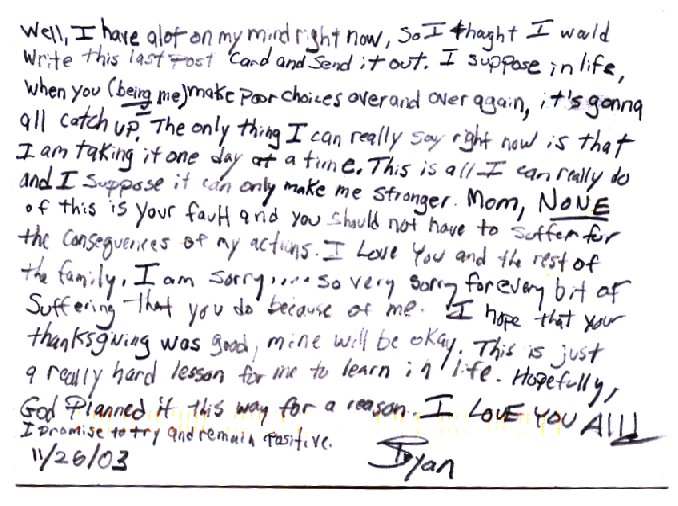 Well, I have alot on my mind right now, so I thaght I would
write this last post card and send it out. I suppose in life,
when you (being me) make poor choices over and over again, it's gonna
all catch up. The only thing I can really say right now is that
I am taking it one day at a time. This is all I can really do
and I suppose it can only make me stronger. Mom, NONE
of this is your fault and you should not have to suffer for
the consequences of my actions. I Love You and the rest of
the family. I am sorry..... so very sorry for every bit of
suffering that you do because of me. I hope that your
thanksgiving was good, mine will be okay. This is just
a really hard lesson for me to learn in life. Hopefully,
God planned it this way for a reason. I LOVE YOU All!
I promise to try and remain positive.
11/26/03 Ryan